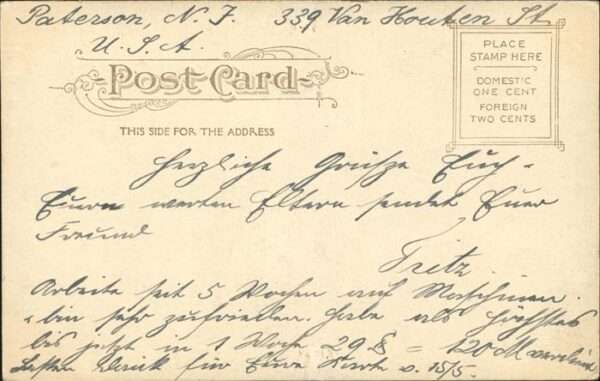 Paterson, N. J. 339 Van Houten St.
U. S. A.
POST CARD
PLACE
STAMP HERE
DOMESTIC
ONE CENT
FOREIGN
TWO CENTS
THIS SIDE FOR THE ADDRESS
Herzliche Grüsze Euch -
Euern werten Eltern sendet Euer
Freund
Fritz.
Arbeite seit 5 Wochen auf Maschinen.
bin sehr zufrieden. habe als höchstes
bis jetzt in 1 Woche 29 $ = 120 M verdient
Besten Dank für Eure Karte v. 15/5.